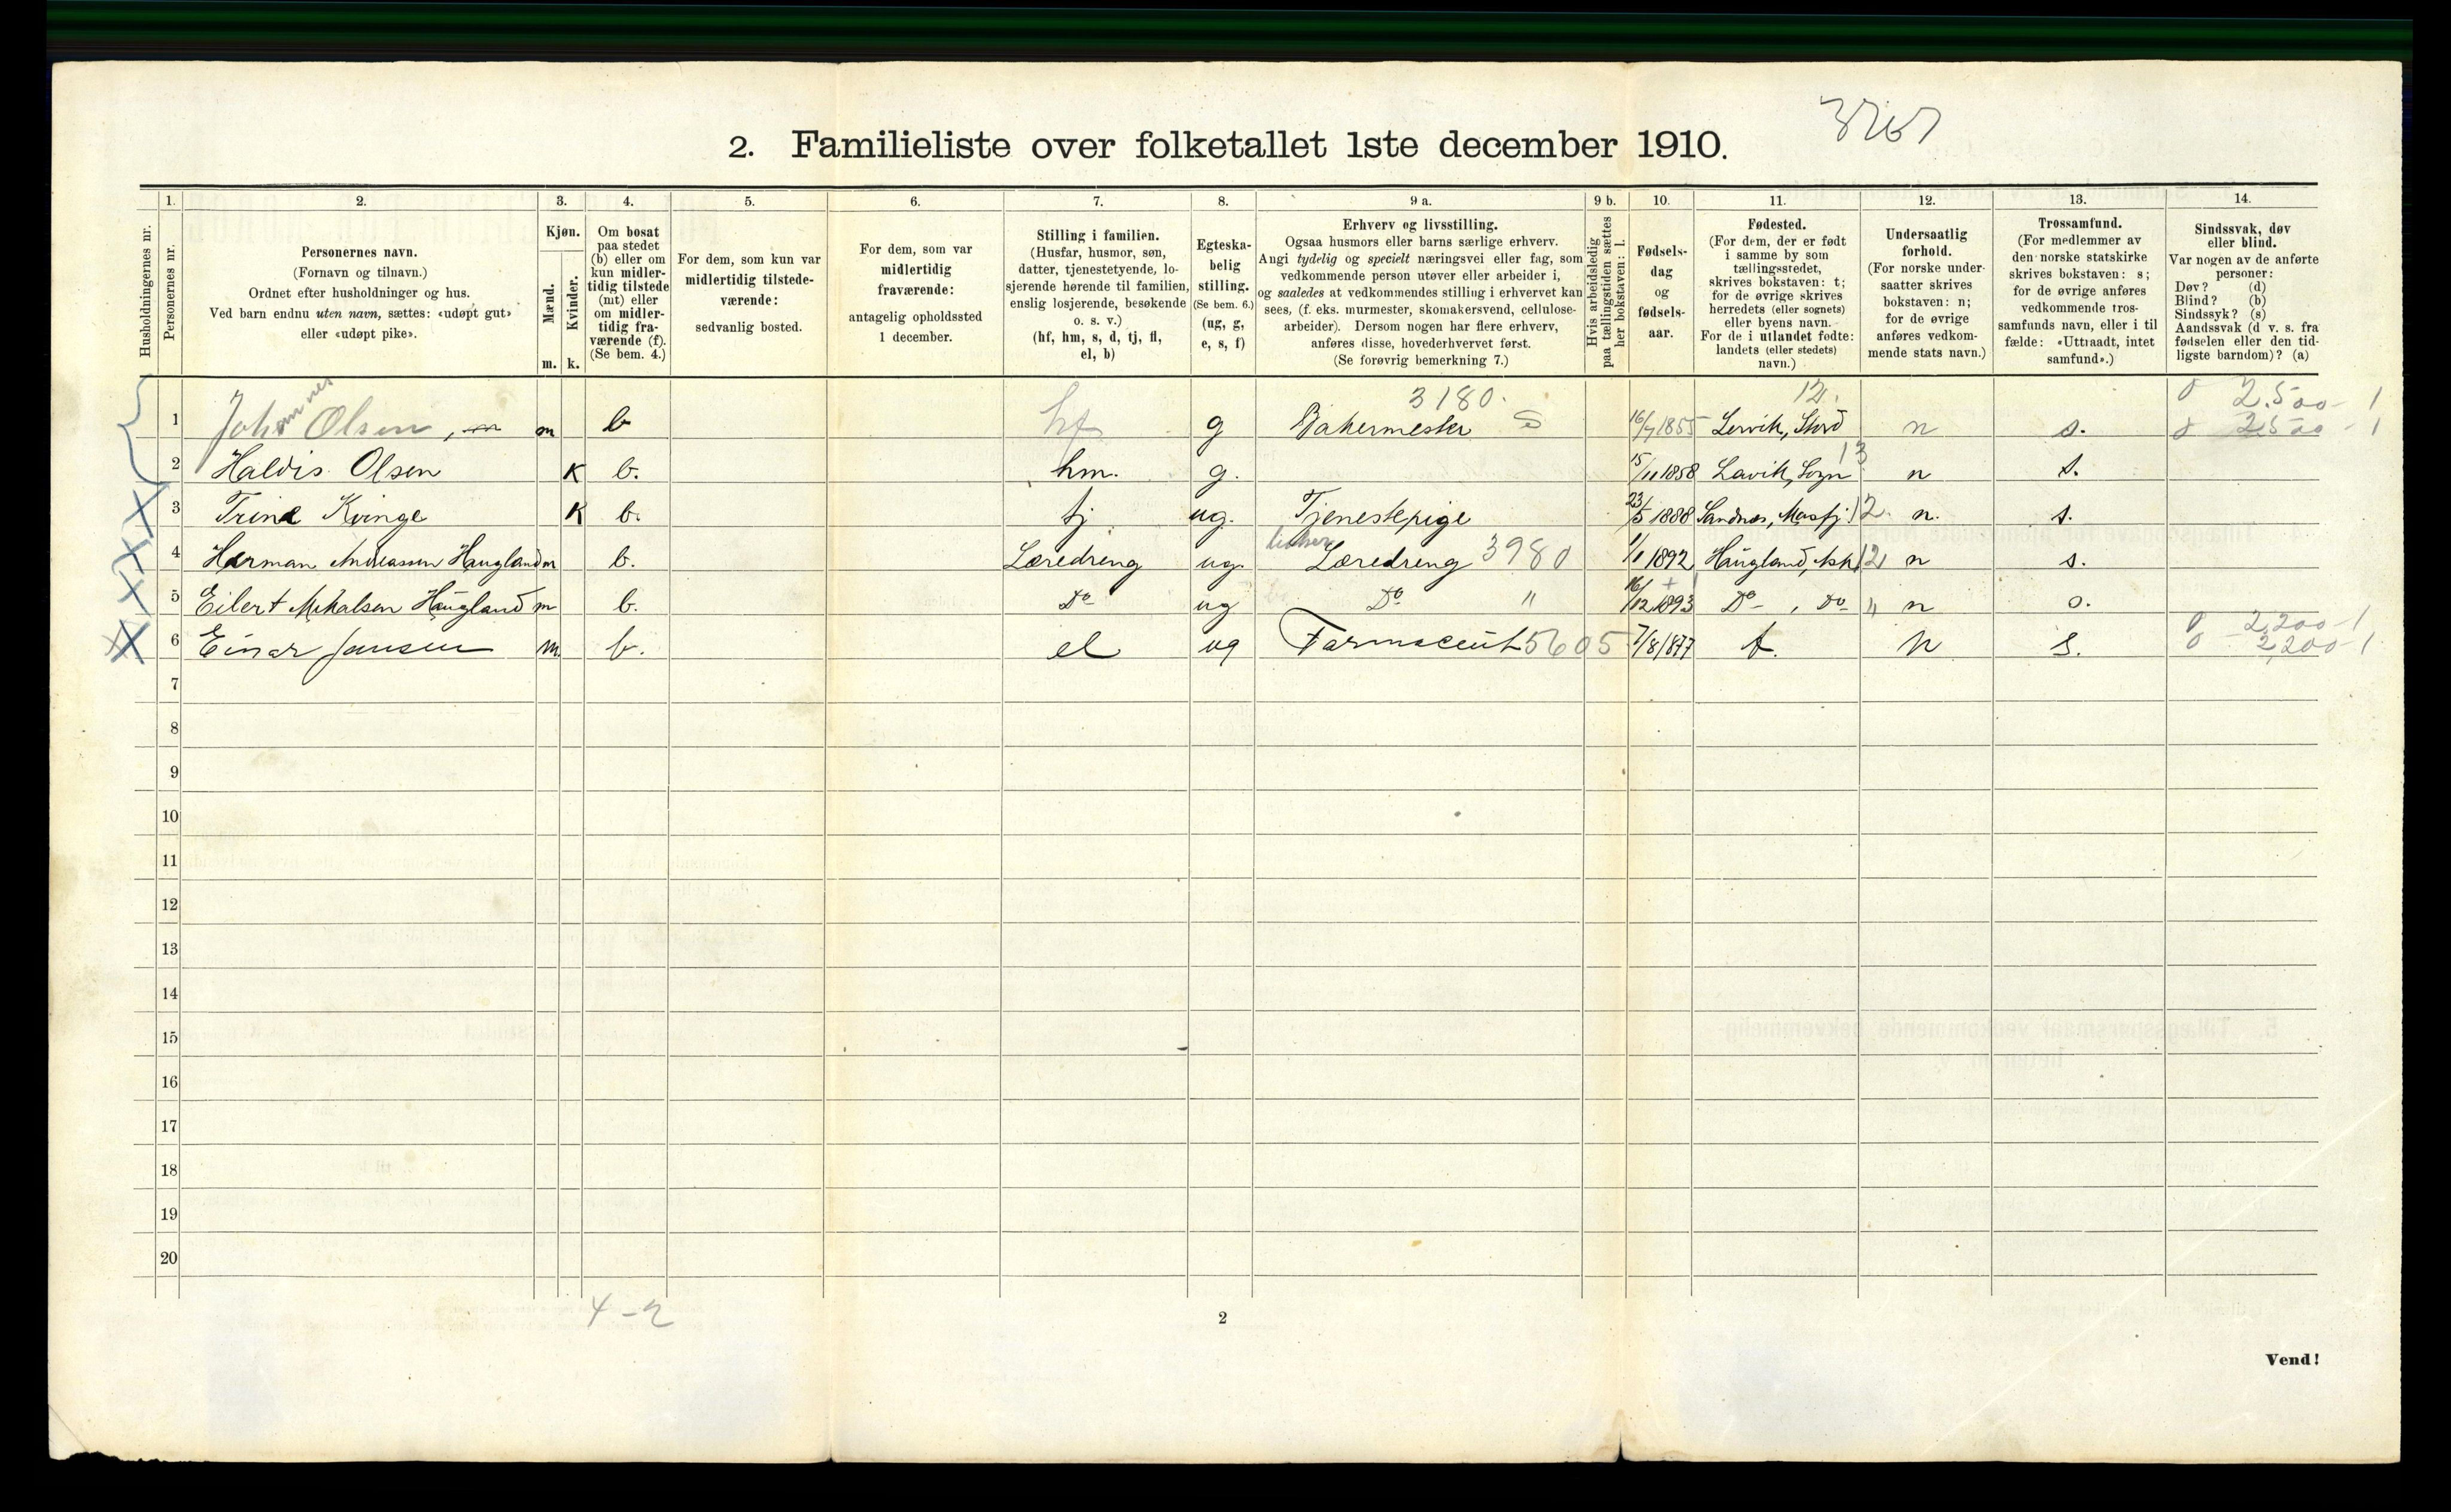 3767
2. Familieliste over folketallet 1ste december 1910.
Husholdningernes nr.
1. Personernes nr.
2. Personernes navn. (Fornavn og tilnavn.) Ordnet efter husholdninger og hus. Ved barn endnu uten navn, sættes: «udøpt gut» eller «udøpt pike».
3. Kjøn. Mænd. m. Kvinder. k.
4. Om bosat paa stedet (b) eller om kun midlertidig tilstede (mt) eller om midlertidig fraværende (f). (Se bem. 4.)
5. For dem, som kun var midlertidig tilstedeværende: sedvanlig bosted.
6. For dem, som var midlertidig fraværende: antagelig opholdssted 1 december.
7. Stilling i familien. (Husfar, husmor, søn, datter, tjenestetyende, losjerende hørende til familien, enslig losjerende, besøkende o. s. v.) (hf, hm, s, d, tj, fl, el, b)
8. Egteskabelig stilling. (Se bem. 6.) (ug, g, e, s, f)
9 a. Erhverv og livsstilling. Ogsaa husmors eller barns særlige erhverv. Angi tydelig og specielt næringsvei eller fag, som vedkommende person utøver eller arbeider i, og saaledes at vedkommendes stilling i erhvervet kan sees, (f. eks. murmester, skomakersvend, cellulosearbeider). Dersom nogen har flere erhverv, anføres disse, hovederhvervet først. (Se forøvrig bemerkning 7.)
9 b. Hvis arbeidsledig paa tællingstiden sættes her bokstaven: l.
10. Fødselsdag og fødselsaar.
11. Fødested. (For dem, der er født i samme by som tællingsstedet, skrives bokstaven: t; for de øvrige skrives herredets (eller sognets) eller byens navn. For de i utlandet fødte: landets (eller stedets) navn.)
12. Undersaatlig forhold. (For norske undersaatter skrives bokstaven: n; for de øvrige anføres vedkommende stats navn.)
13. Trossamfund. (For medlemmer av den norske statskirke skrives bokstaven: s; for de øvrige anføres vedkommende trossamfunds navn, eller i tilfælde: «Uttraadt, intet samfund».)
14. Sindssvak, døv eller blind. Var nogen av de anførte personer: Døv? (d) Blind? (b) Sindssyk? (s) Aandssvak (d v. s. fra fødselen eller den tidligste barndom)? (a)
3180. 12. 0 2.500-1
1 Johannes Olsen, m b hf g Bakermester 16/7 1855 Lervik, Stord n s. 0 2500-1
2 Haldis Olsen K b. hm. g. 15/11 1858 Lavik, Sogn 13 n s.
3 Trine Kvinge K b. tj ug. Tjenestepige 23/5 1888 Sandnes, Masfj. 12. n. s.
4 Herman Andreassen Haugland m b. Læredreng ug. Læredreng 3980 1/1 1892 Haugland, Ask 12 n s.
5 Eilert Mikalsen Haugland m b. Do ug Do " 16/12 1893 Do, Do " n o.
0 2,200-1
6 Einar Jansen m. b. el ug Farmaceut 5605 7/8/1877 t. n s. 0 2,200-1
7
8
9
10
11
12
13
14
15
16
17
18
19
20
4-2
2
Vend!